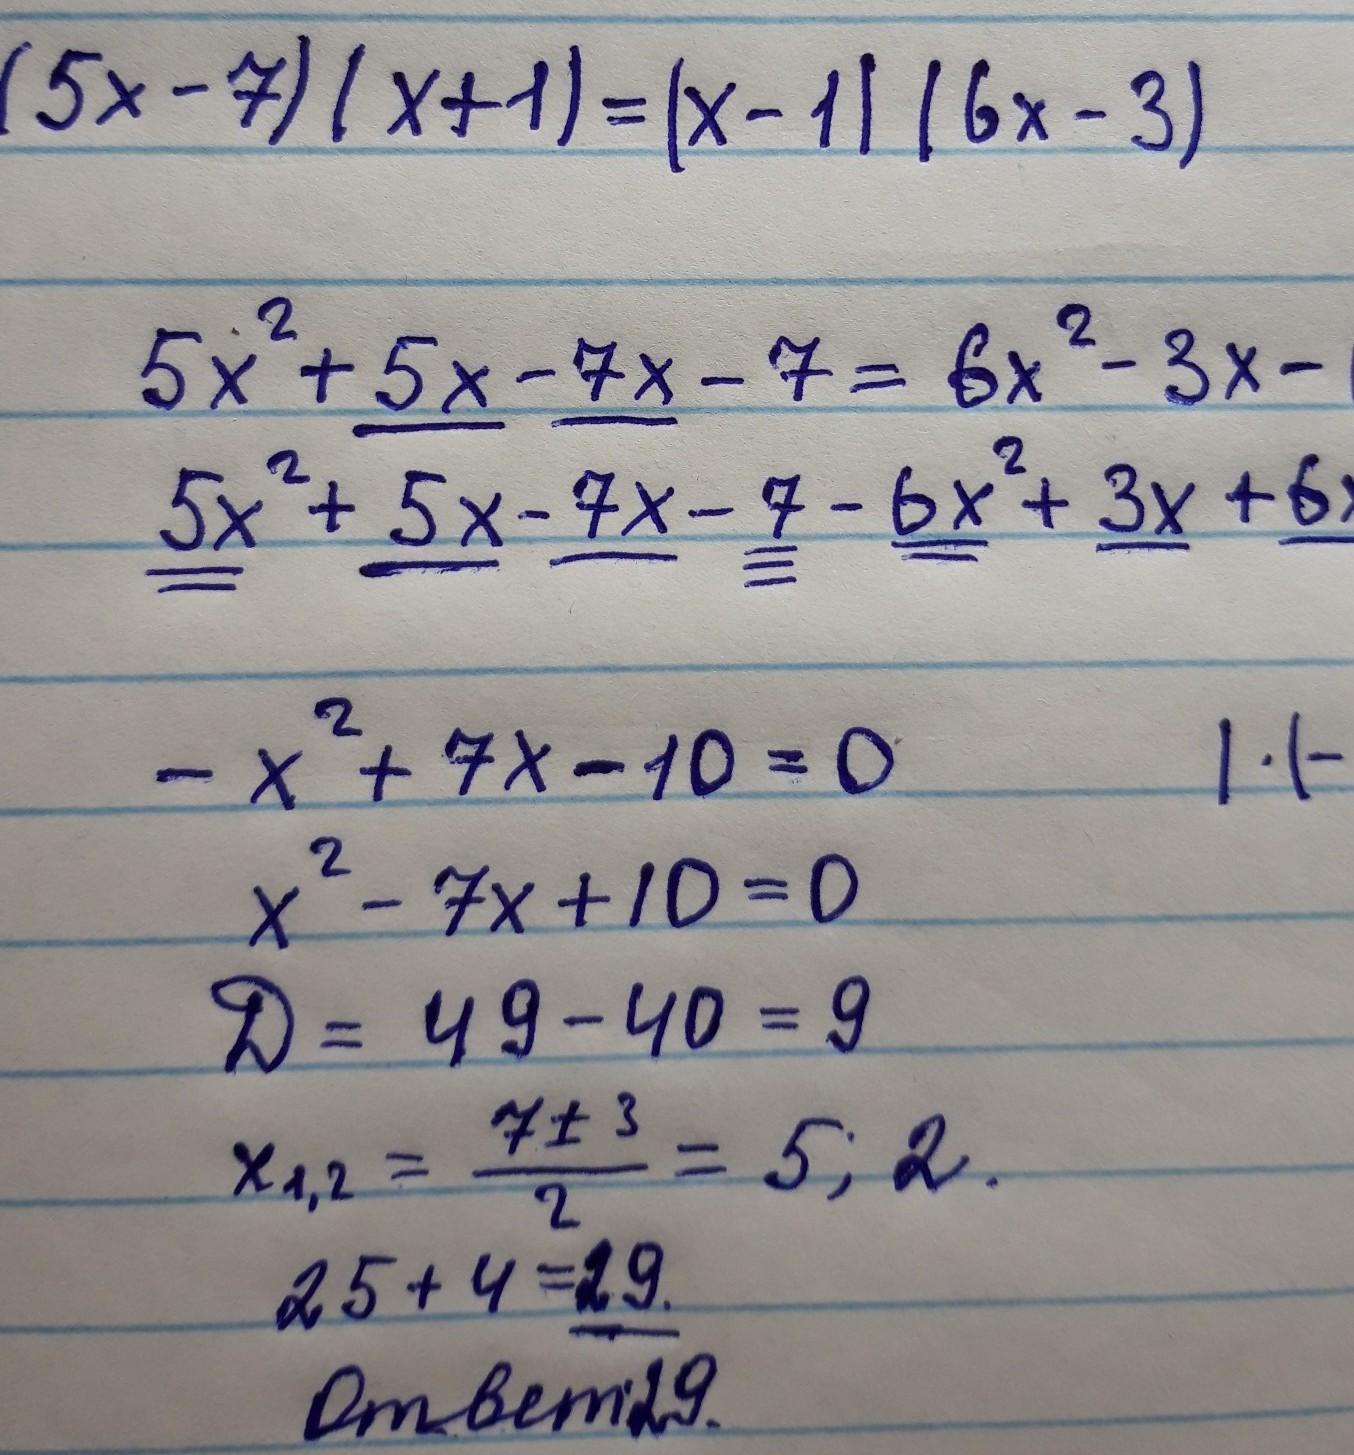 (5x-7)(x+1)=(x-1)(6x-3)
5x²+5x-7x-7=6x²-3x-
5x²+5x-7x-7-6x²+3x+6x
-x²+7x-10=0 |·(-
x²-7x+10=0
D=49-40=9
x₁,₂ = (7±3)/2 = 5; 2.
25+4=29.
Ответ:29.